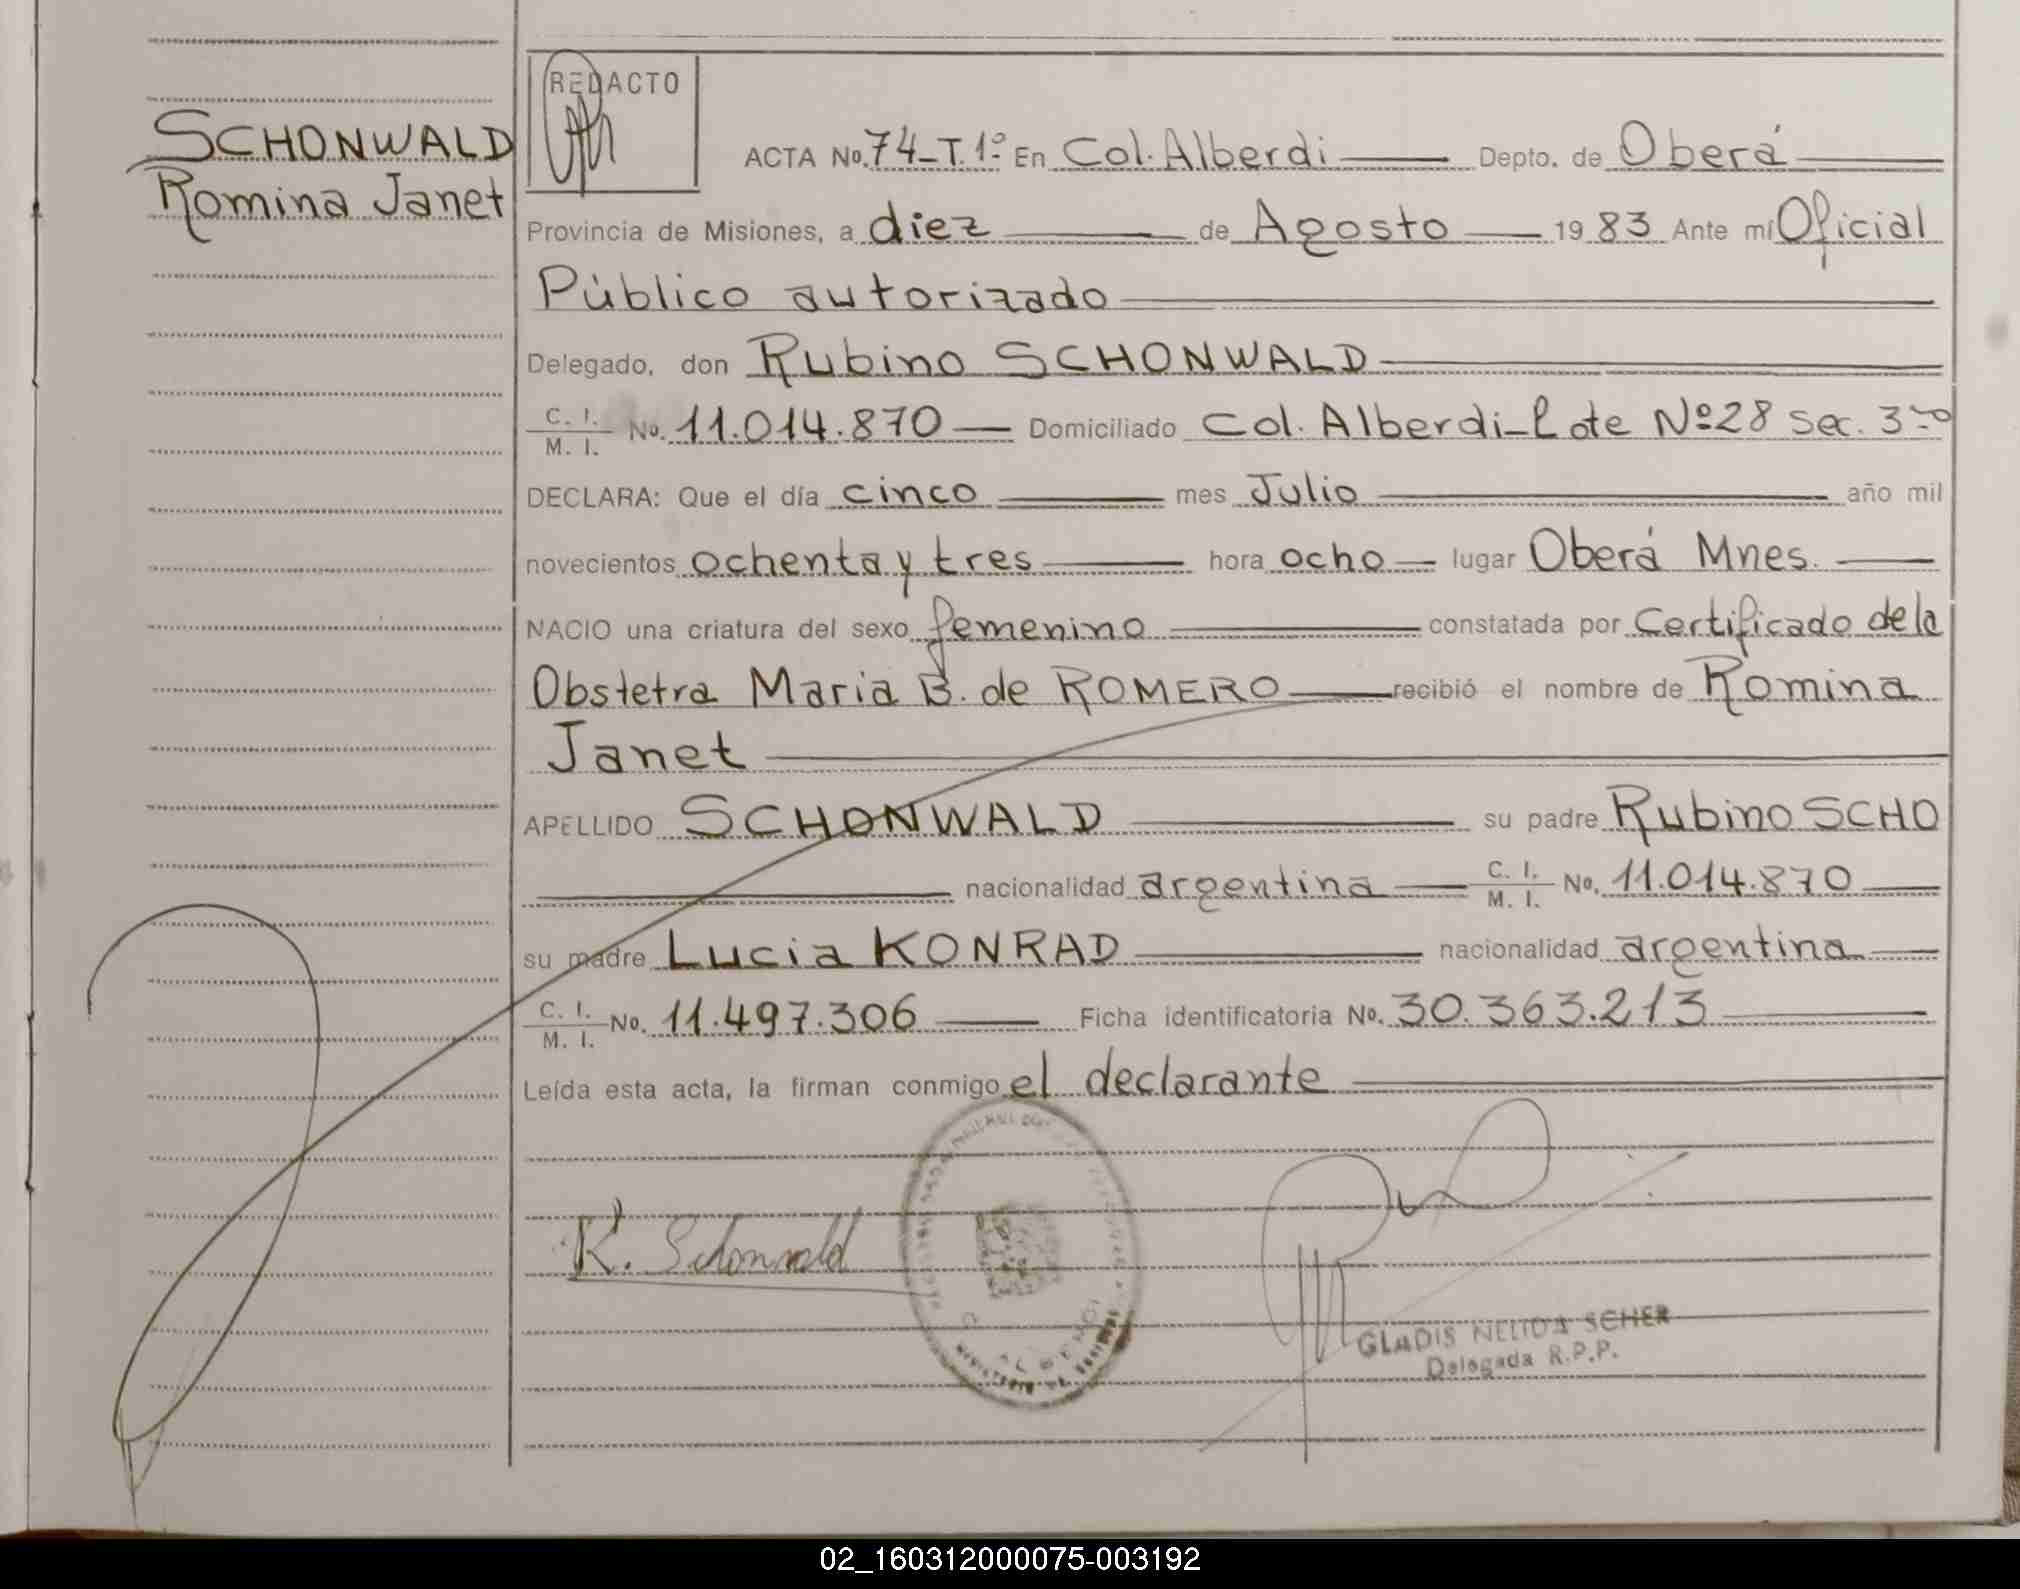 SCHONWALD
Romina Janet
REDACTO
ACTA No. 74-T.1º En Col. Alberdi Depto. de Oberá
Provincia de Misiones, a diez de Agosto 1983 Ante mí Oficial
Público autorizado
Delegado, don Rubino SCHONWALD
C. I. / M. I. No. 11.014.870 Domiciliado Col. Alberdi-Lote Nº28 Sec. 3ro
DECLARA: Que el día cinco mes Julio año mil
novecientos ochenta y tres hora ocho lugar Oberá Mnes.
NACIO una criatura del sexo femenino constatada por Certificado de la
Obstetra Maria B. de ROMERO recibió el nombre de Romina
Janet
APELLIDO SCHONWALD su padre Rubino SCHO
nacionalidad argentina C. I. / M. I. No. 11.014.870
su madre Lucia KONRAD nacionalidad argentina
C. I. / M. I. No. 11.497.306 Ficha identificatoria No. 30.363.213
Leída esta acta, la firman conmigo el declarante
R. Schonwald
GLADIS NELIDA SCHER
Delegada R.P.P.
02_160312000075-003192